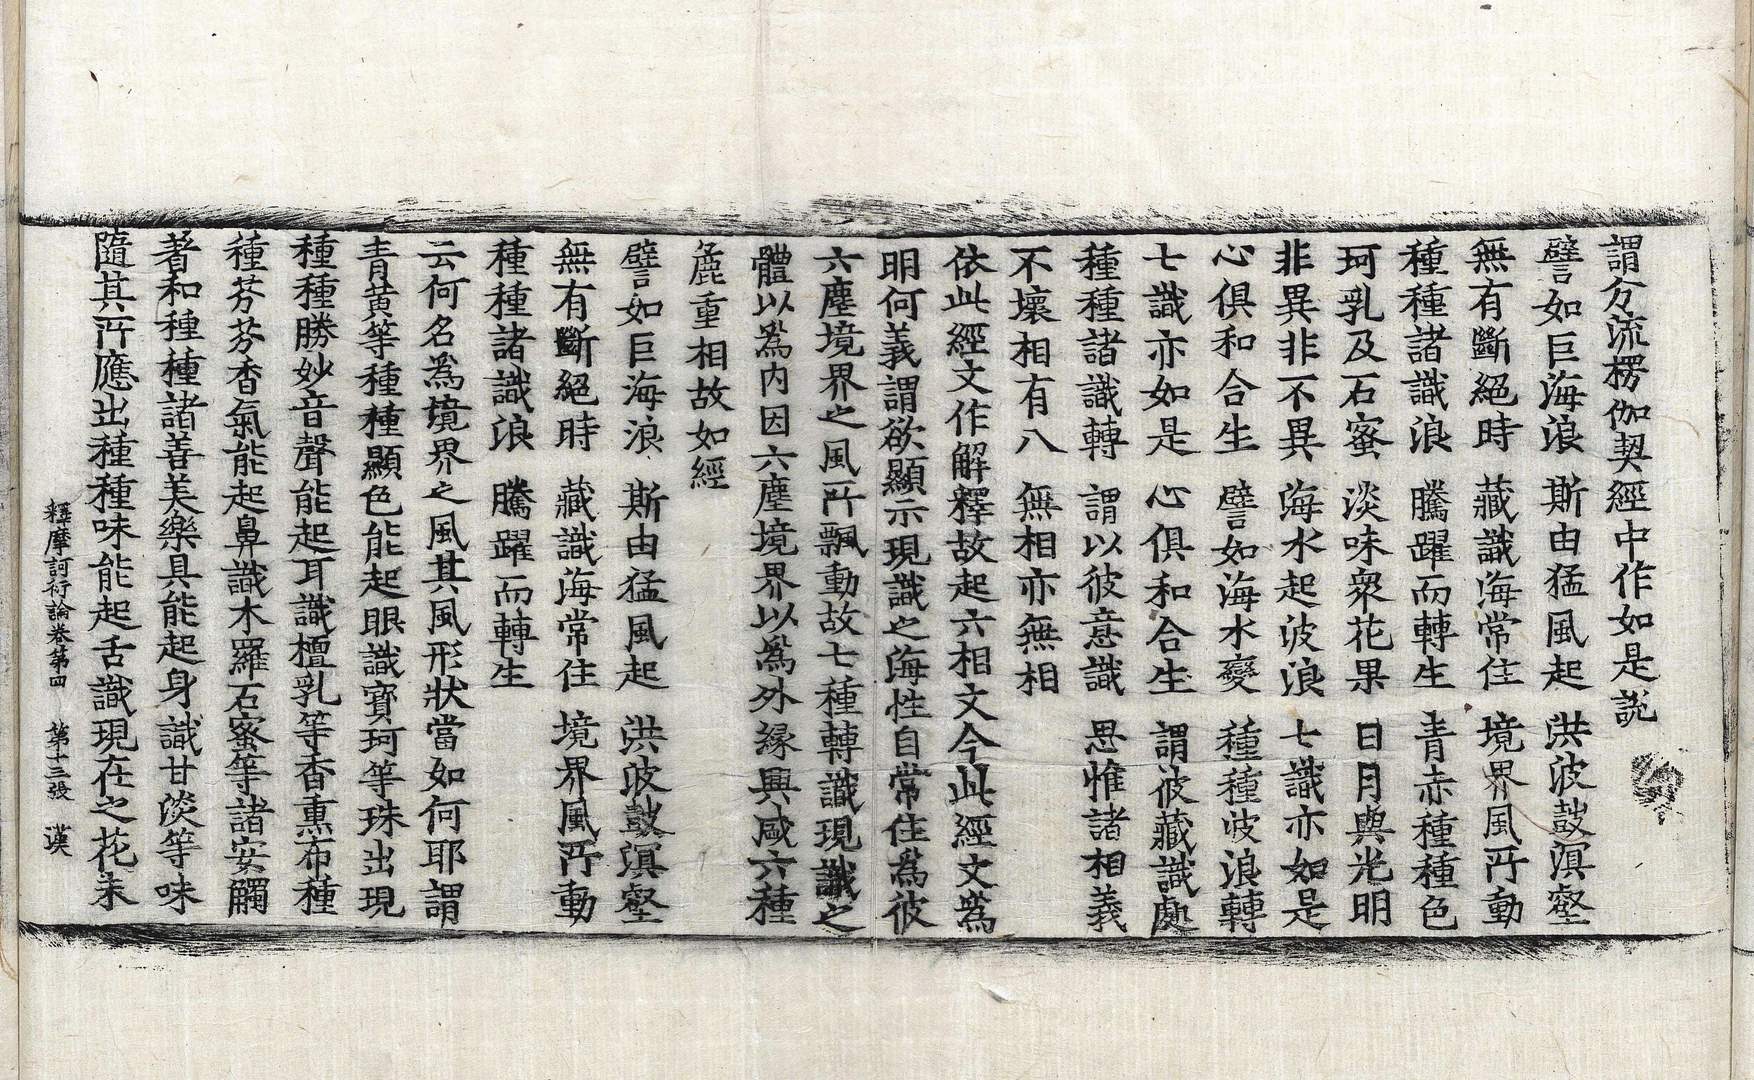 謂分流楞伽契經中作如是說
譬如巨海浪 斯由猛風起 洪波鼓溟壑
無有斷絕時 藏識海常住 境界風所動
種種諸識浪 騰躍而轉生 青赤種種色
珂乳及石蜜 淡味衆花果 日月與光明
非異非不異 海水起波浪 七識亦如是
心俱和合生 譬如海水變 種種波浪轉
七識亦如是 心俱和合生 謂彼藏識處
種種諸識轉 謂以彼意識 思惟諸相義
不壞相有八 無相亦無相
依此經文作解釋故起六相文今此經文為
明何義謂欲顯示現識之海性自常住為彼
六塵境界之風所飄動故七種轉識現識之
體以為內因六塵境界以為外緣興咸六種
麁重相故如經
譬如巨海浪 斯由猛風起 洪波鼓溟壑
無有斷絕時 藏識海常住 境界風所動
種種諸識浪 騰躍而轉生
云何名為境界之風其風形狀當如何耶謂
青黃等種種顯色能起眼識寶珂等珠出現
種種勝妙音聲能起耳識檀乳等香熏布種
種芬芬香氣能起鼻識木羅石蜜等諸安觸
著和種種諸善美樂具能起身識甘淡等味
隨其所應出種種味能起舌識現在之花未
釋摩訶衍論卷第四 第十三張 漢